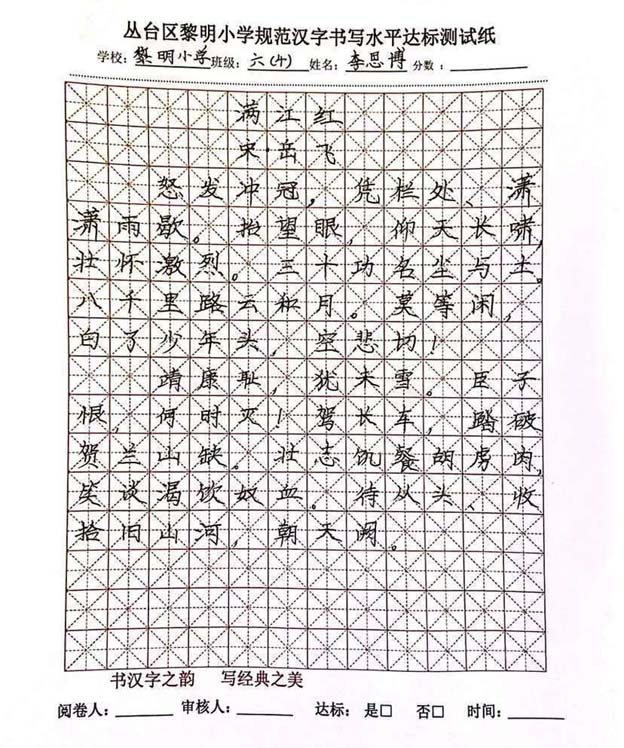 丛台区黎明小学规范汉字书写水平达标测试纸
学校:黎明小学班级:六(4)姓名:李思博分数:
满江红
宋·岳飞
怒发冲冠,凭栏处、潇
潇雨歇。抬望眼,仰天长啸,
壮怀激烈。三十功名尘与土。
八千里路云和月。莫等闲,
白了少年头,空悲切!
靖康耻,犹未雪。臣子
恨,何时灭!驾长车,踏破
贺兰山缺。壮志饥餐胡虏肉,
笑谈渴饮奴血。待从头、收
拾旧山河,朝天阙。
书汉字之韵 写经典之美
阅卷人: 审核人: 达标: 是□ 否□ 时间: